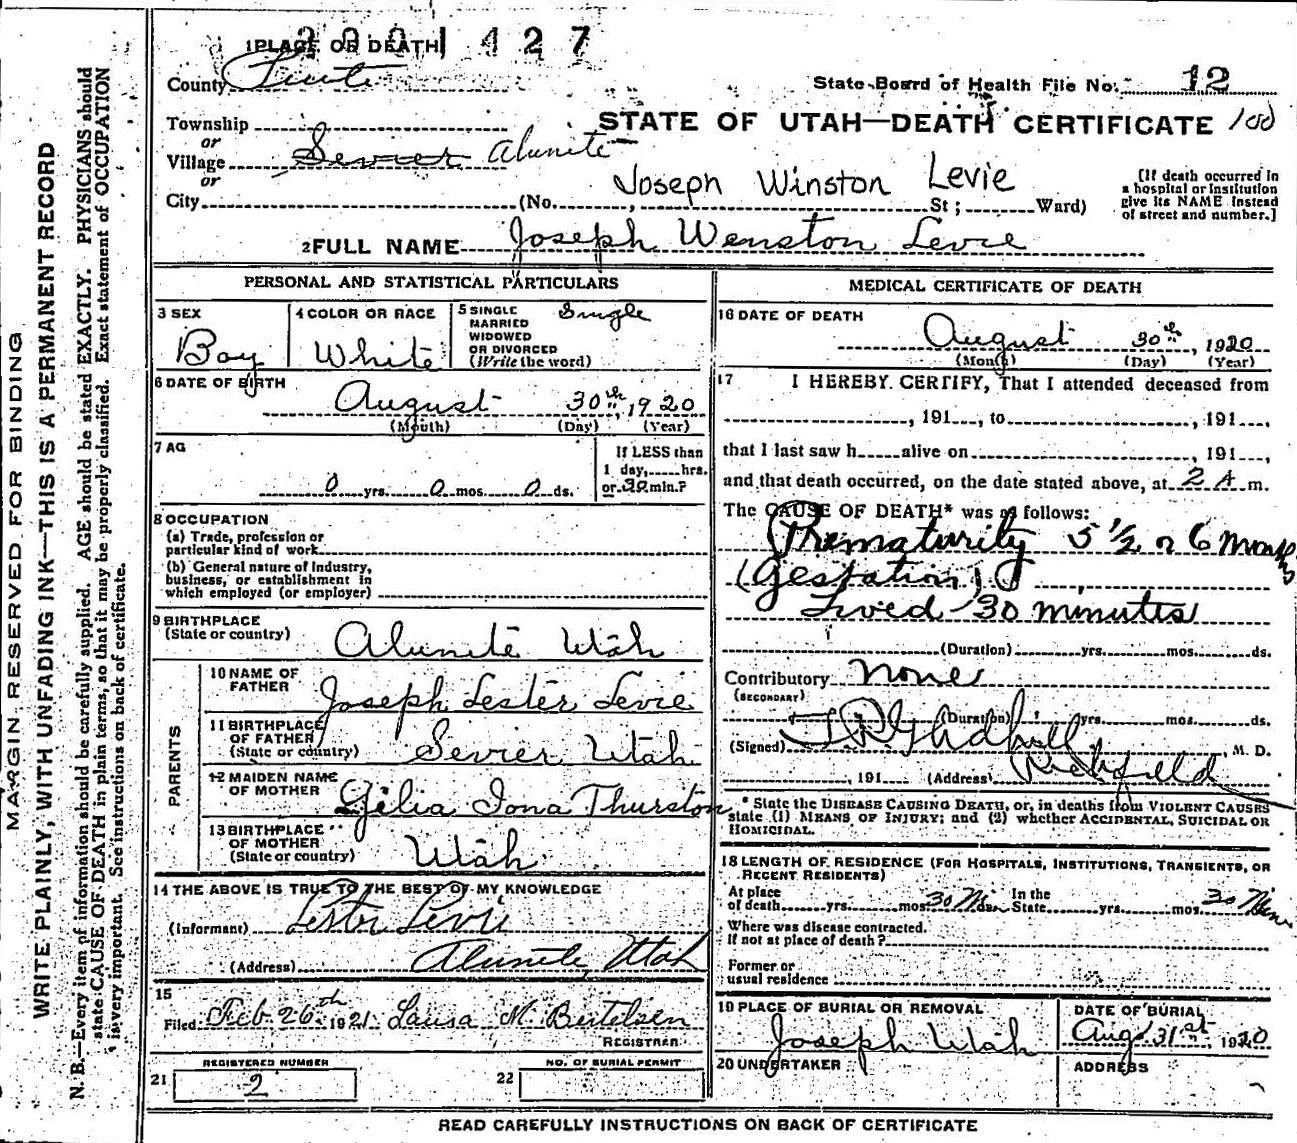 2001427
1 PLACE OF DEATH
County Piute
State Board of Health File No. 12
Township
STATE OF UTAH—DEATH CERTIFICATE 100
or
Village Sevier Alunite
or
Joseph Winston Levie
City (No. St; Ward)
[If death occurred in
a hospital or institution
give its NAME instead
of street and number.]
2 FULL NAME Joseph Wenston Levie
PERSONAL AND STATISTICAL PARTICULARS
3 SEX
Boy
4 COLOR OR RACE
White
5 SINGLE Single
MARRIED
WIDOWED
OR DIVORCED
(Write the word)
6 DATE OF BIRTH
August 30th, 1920
(Month) (Day) (Year)
7 AG
0 yrs. 0 mos. 0 ds.
If LESS than
1 day, hrs.
or 30 min.?
8 OCCUPATION
(a) Trade, profession or
particular kind of work
(b) General nature of Industry,
business, or establishment in
which employed (or employer)
9 BIRTHPLACE
(State or country) Alunite Utah
PARENTS
10 NAME OF
FATHER Joseph Lester Levie
11 BIRTHPLACE
OF FATHER
(State or country) Sevier Utah
12 MAIDEN NAME
OF MOTHER Gelia Iona Thurston
13 BIRTHPLACE
OF MOTHER
(State or country) Utah
14 THE ABOVE IS TRUE TO THE BEST OF MY KNOWLEDGE
(Informant) Lester Levie
(Address) Alunite, Utah
15
Filed Feb 26th 1921 Laura M Bertelsen
REGISTRAR
REGISTERED NUMBER
21 2
NO. OF BURIAL PERMIT
22
MEDICAL CERTIFICATE OF DEATH
16 DATE OF DEATH
August 30th, 1920
(Month) (Day) (Year)
17 I HEREBY CERTIFY, That I attended deceased from
, 191 , to , 191 ,
that I last saw h alive on , 191 ,
and that death occurred, on the date stated above, at 2 A m.
The CAUSE OF DEATH* was as follows:
Prematurity 5 1/2 or 6 months
(gestation)
Lived 30 minutes
(Duration) yrs. mos. ds.
Contributory None
(SECONDARY)
(Duration) yrs. mos. ds.
(Signed) M. D.
, 191 (Address) Richfield
* State the DISEASE CAUSING DEATH, or, in deaths from VIOLENT CAUSES
state (1) MEANS OF INJURY; and (2) whether ACCIDENTAL, SUICIDAL OR
HOMICIDAL.
18 LENGTH OF RESIDENCE (FOR HOSPITALS, INSTITUTIONS, TRANSIENTS, OR
RECENT RESIDENTS)
At place
of death yrs. mos. 30 Mi ds.
In the
State yrs. mos. 30 Min
Where was disease contracted.
If not at place of death?
Former or
usual residence
19 PLACE OF BURIAL OR REMOVAL
Joseph Utah
DATE OF BURIAL
Aug 31st, 1920
20 UNDERTAKER
ADDRESS
READ CAREFULLY INSTRUCTIONS ON BACK OF CERTIFICATE
MARGIN RESERVED FOR BINDING
WRITE PLAINLY, WITH UNFADING INK—THIS IS A PERMANENT RECORD
N. B.—Every item of information should be carefully supplied. AGE should be stated EXACTLY. PHYSICIANS should
state CAUSE OF DEATH in plain terms, so that it may be properly classified. Exact statement of OCCUPATION
is very important. See instructions on back of certificate.